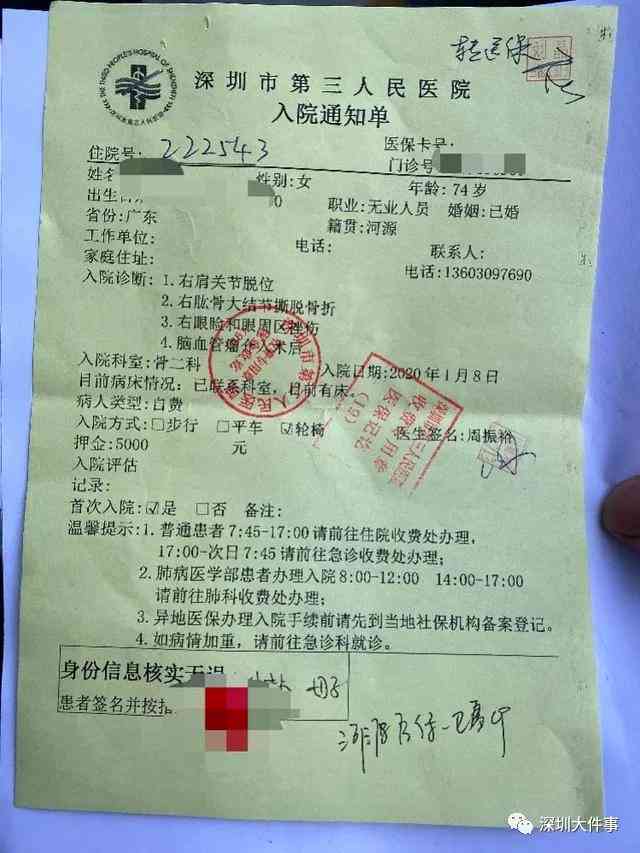 转医保
THE THIRD PEOPLE'S HOSPITAL OF SHENZHEN
深圳市第三人民医院
入院通知单
住院号: 222543
医保卡号:
门诊号
姓名
性别:女
年龄:74岁
出生日
0
职业:无业人员 婚姻:已婚
省份:广东
籍贯:河源
工作单位:
电话:
联系人:
家庭住址:
电话:13603097690
入院诊断: 1.右肩关节脱位
2.右肱骨大结节撕脱骨折
3.右眼睑和眼周区挫伤
4.脑血管瘤介入术后
入院科室:骨二科
入院日期:2020年1月8日
目前病床情况: 已联系科室,目前有床。
病人类型:自费
入院方式:□步行 □平车 ☑轮椅
医生签名:周振裕
押金:5000 元
入院评估
记录:
首次入院:☑是 □否 备注:
温馨提示:1.普通患者7:45-17:00请前往住院收费处办理,
17:00-次日7:45请前往急诊收费处办理;
2.肺病医学部患者办理入院8:00-12:00 14:00-17:00
请前往肺科收费处办理;
3.异地医保办理入院手续前请先到当地社保机构备案登记。
4.如病情加重,请前往急诊科就诊。
身份信息核实无误
患者签名并按指
母子
深圳大件事